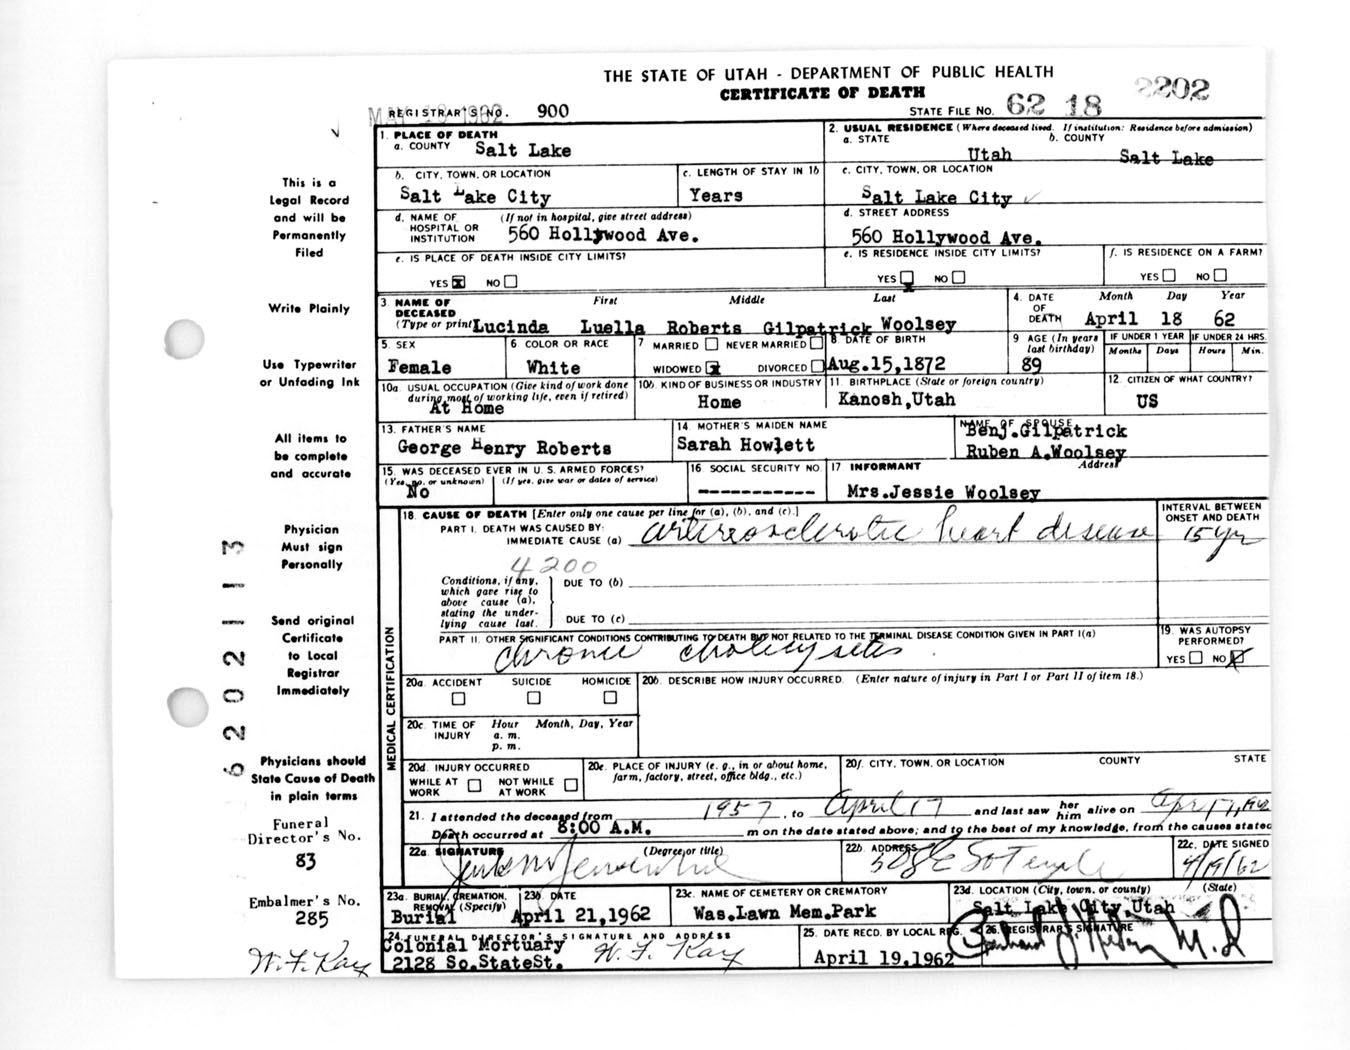 THE STATE OF UTAH - DEPARTMENT OF PUBLIC HEALTH
CERTIFICATE OF DEATH
2202
REGISTRAR'S NO. 900
STATE FILE NO. 62 18
1. PLACE OF DEATH
a. COUNTY Salt Lake
2. USUAL RESIDENCE (Where deceased lived. If institution: Residence before admission)
a. STATE Utah b. COUNTY Salt Lake
b. CITY, TOWN, OR LOCATION Salt Lake City
c. LENGTH OF STAY IN 1b Years
c. CITY, TOWN, OR LOCATION Salt Lake City
d. NAME OF HOSPITAL OR INSTITUTION (If not in hospital, give street address) 560 Hollywood Ave.
d. STREET ADDRESS 560 Hollywood Ave.
e. IS PLACE OF DEATH INSIDE CITY LIMITS?
YES NO
e. IS RESIDENCE INSIDE CITY LIMITS?
YES NO
f. IS RESIDENCE ON A FARM?
YES NO
3. NAME OF DECEASED (Type or print) First Middle Last
Lucinda Luella Roberts Gilpatrick Woolsey
4. DATE OF DEATH Month Day Year
April 18 62
5. SEX Female
6. COLOR OR RACE White
7 MARRIED NEVER MARRIED
WIDOWED DIVORCED
8. DATE OF BIRTH Aug.15,1872
9 AGE (In years last birthday) 89
IF UNDER 1 YEAR Months Days
IF UNDER 24 HRS. Hours Min.
10a. USUAL OCCUPATION (Give kind of work done during most of working life, even if retired) At Home
10b. KIND OF BUSINESS OR INDUSTRY Home
11. BIRTHPLACE (State or foreign country) Kanosh,Utah
12. CITIZEN OF WHAT COUNTRY? US
13. FATHER'S NAME George Henry Roberts
14. MOTHER'S MAIDEN NAME Sarah Howlett
NAME OF SPOUSE
Benj.Gilpatrick
Ruben A.Woolsey
15. WAS DECEASED EVER IN U. S. ARMED FORCES?
(Yes, no, or unknown) (If yes, give war or dates of service)
No
16. SOCIAL SECURITY NO. -----------
17 INFORMANT Address
Mrs.Jessie Woolsey
MEDICAL CERTIFICATION
18. CAUSE OF DEATH [Enter only one cause per line for (a), (b), and (c).]
INTERVAL BETWEEN ONSET AND DEATH
PART I. DEATH WAS CAUSED BY:
IMMEDIATE CAUSE (a) arteriosclerotic heart disease 15 yr
4200
Conditions, if any, which gave rise to above cause (a), stating the underlying cause last.
DUE TO (b)
DUE TO (c)
PART II. OTHER SIGNIFICANT CONDITIONS CONTRIBUTING TO DEATH BUT NOT RELATED TO THE TERMINAL DISEASE CONDITION GIVEN IN PART I(a)
chronic cholecystitis
19. WAS AUTOPSY PERFORMED?
YES NO
20a. ACCIDENT SUICIDE HOMICIDE
20b. DESCRIBE HOW INJURY OCCURRED. (Enter nature of injury in Part I or Part II of item 18.)
20c. TIME OF INJURY Hour Month, Day, Year
a. m.
p. m.
20d. INJURY OCCURRED
WHILE AT WORK NOT WHILE AT WORK
20e. PLACE OF INJURY (e. g., in or about home, farm, factory, street, office bldg., etc.)
20f. CITY, TOWN, OR LOCATION COUNTY STATE
21. I attended the deceased from 1957, to April 17 and last saw her him alive on Apr 17, 1962
Death occurred at 8:00 A.M. m on the date stated above; and to the best of my knowledge, from the causes stated
22a. SIGNATURE (Degree or title)
22b. ADDRESS 508 E So Temple
22c. DATE SIGNED 4/19/62
23a. BURIAL, CREMATION, REMOVAL (Specify) Burial
23b. DATE April 21,1962
23c. NAME OF CEMETERY OR CREMATORY Was.Lawn Mem.Park
23d. LOCATION (City, town, or county) (State)
Salt Lake City,Utah
24. FUNERAL DIRECTOR'S SIGNATURE AND ADDRESS
Colonial Mortuary W. F. Kay
2128 So.StateSt.
25. DATE RECD. BY LOCAL REG. April 19,1962
26. REGISTRAR'S SIGNATURE
M.D
This is a
Legal Record
and will be
Permanently
Filed
Write Plainly
Use Typewriter
or Unfading Ink
All items to
be complete
and accurate
Physician
Must sign
Personally
Send original
Certificate
to Local
Registrar
Immediately
Physicians should
State Cause of Death
in plain terms
Funeral
Director's No.
83
Embalmer's No.
285
W. F. Kay